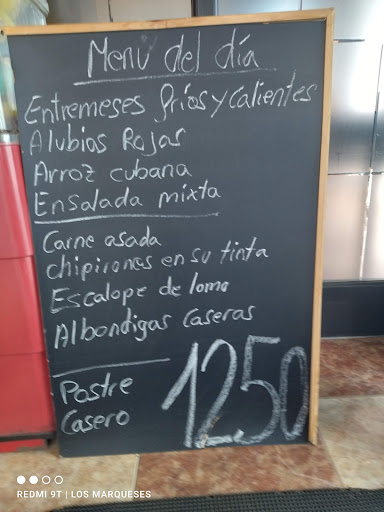 Menú del día
Entremeses fríos y calientes
Alubias Rojas
Arroz cubana
Ensalada mixta
Carne asada
chipirones en su tinta
Escalope de lomo
Albondigas Caseras
Postre
Casero
1250
REDMI 9T | LOS MARQUESES